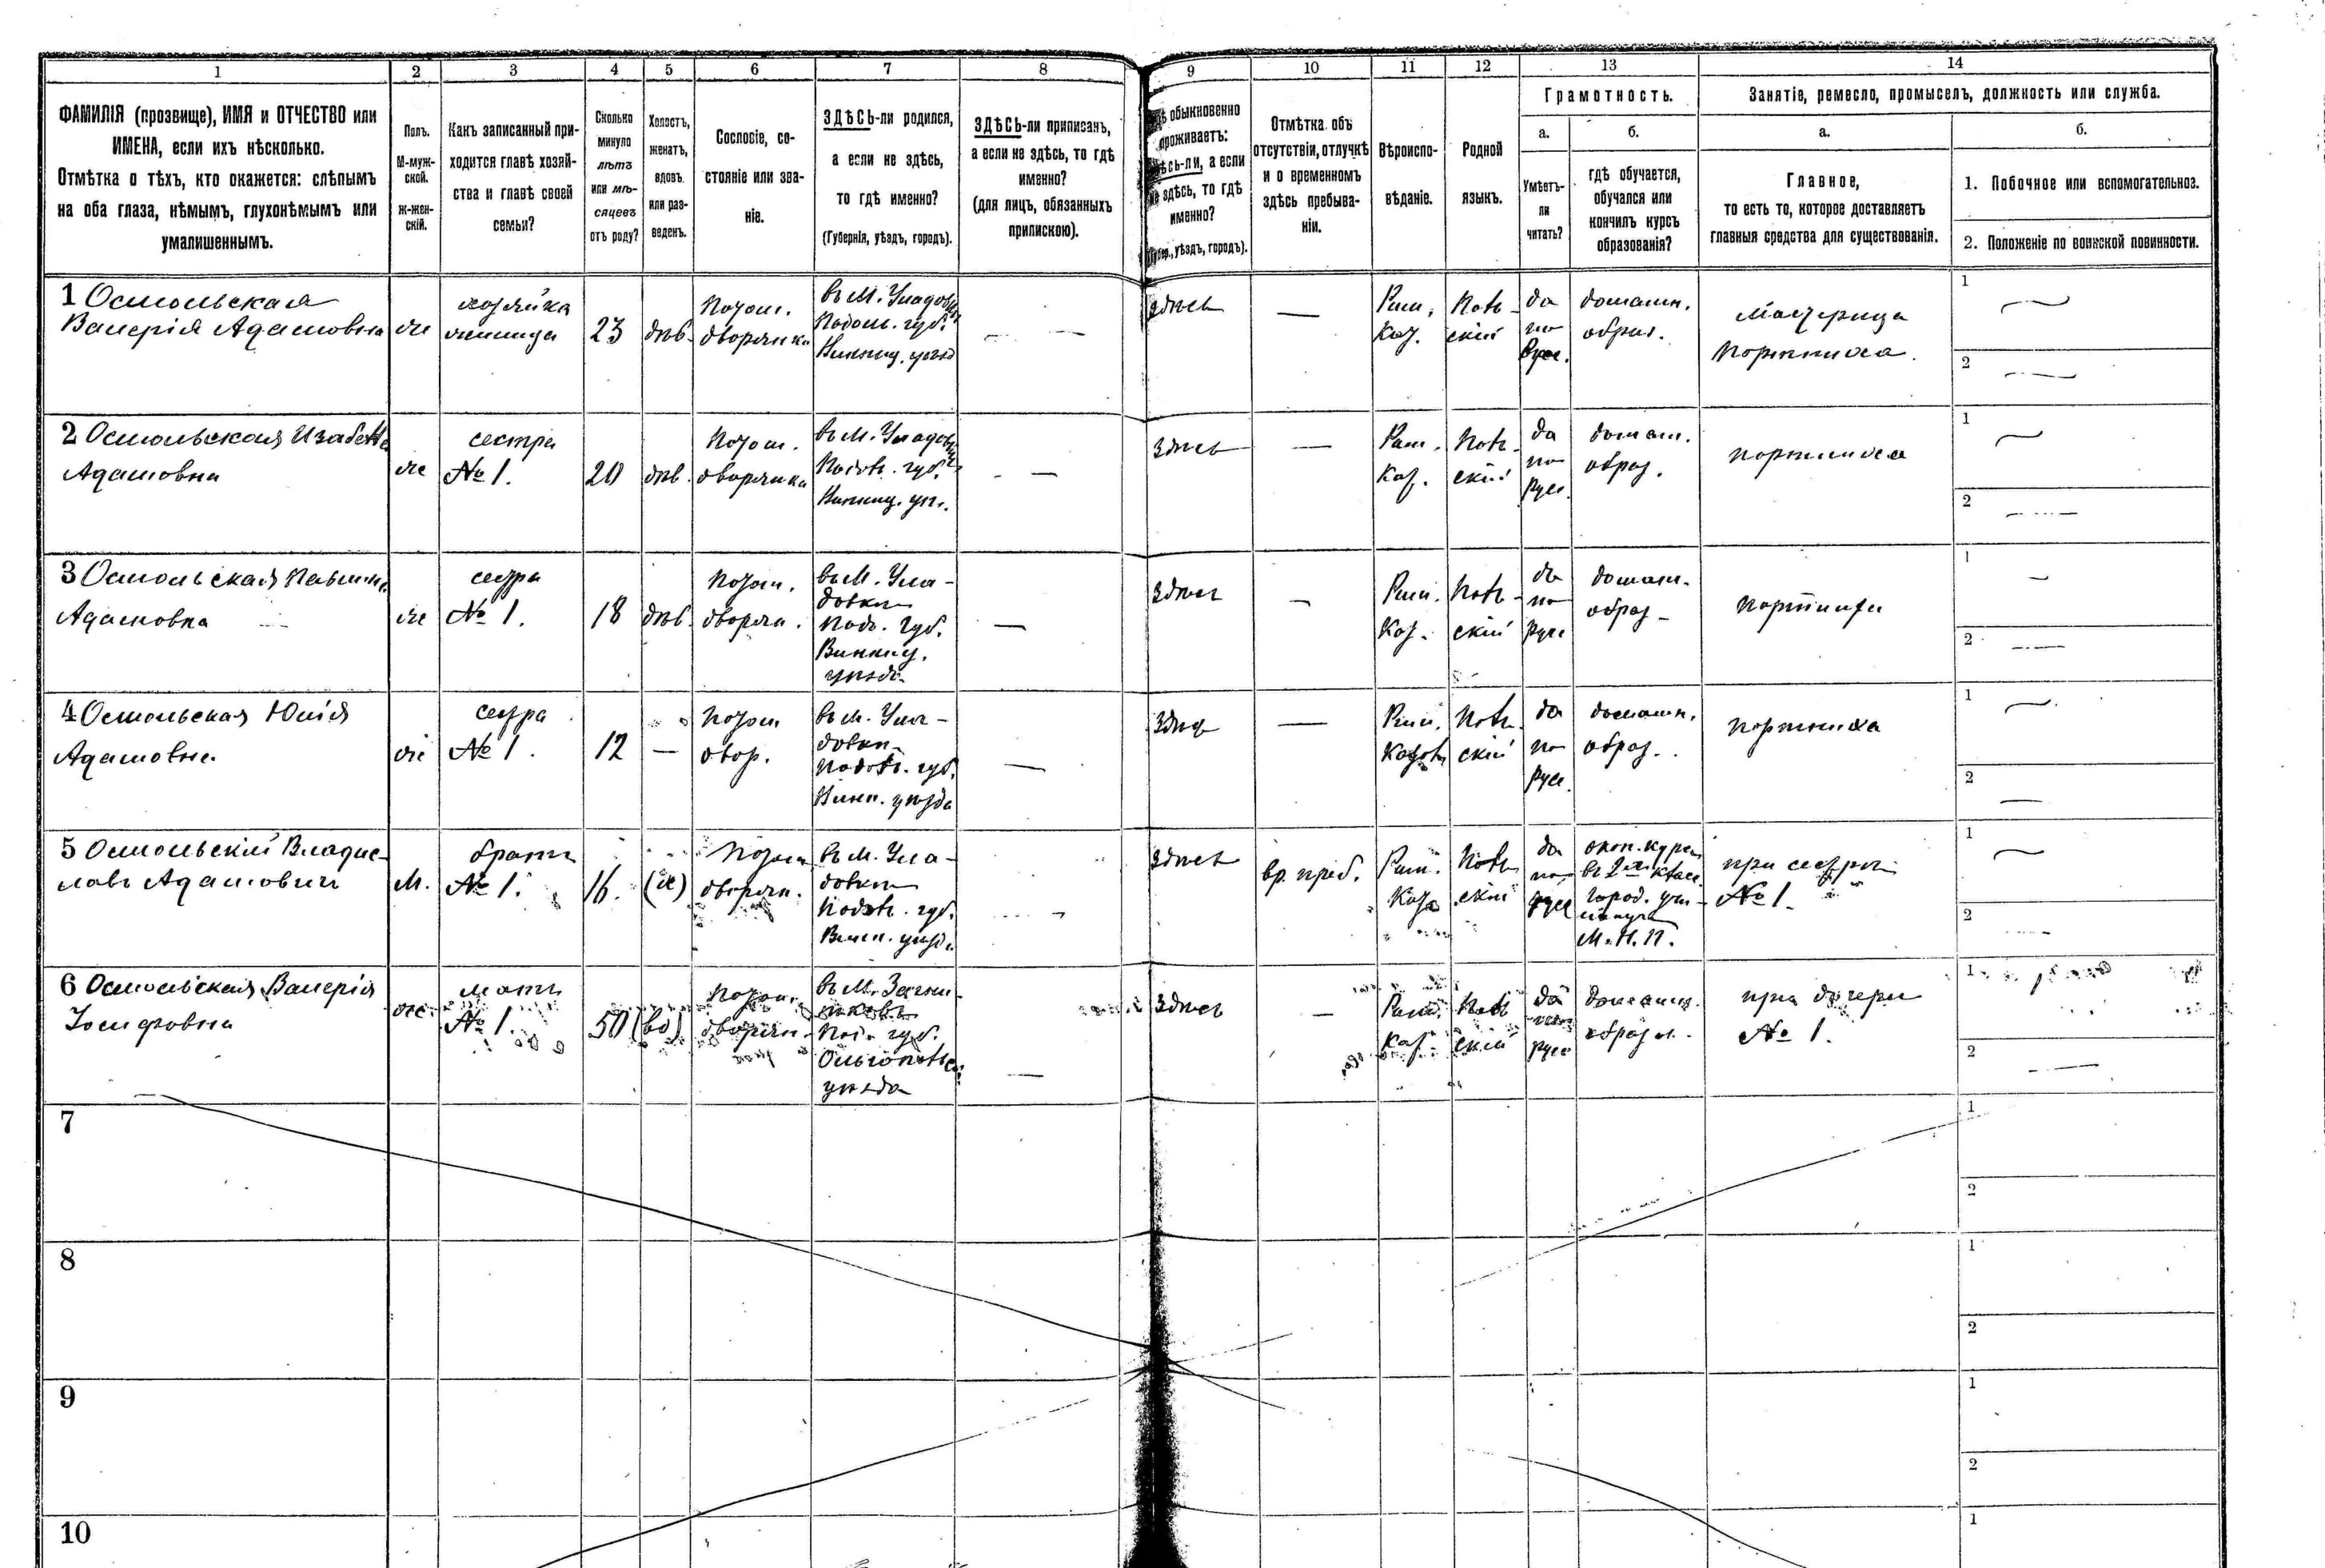 1 2 3 4 5 6 7 8 9 10 11 12 13 14
ФАМИЛІЯ (прозвище), ИМЯ и ОТЧЕСТВО или
ИМЕНА, если ихъ нѣсколько.
Отмѣтка о тѣхъ, кто окажется: слѣпымъ
на оба глаза, нѣмымъ, глухонѣмымъ или
умалишеннымъ.
Полъ.
М-муж-
ской.
Ж-жен-
скій.
Какъ записанный при-
ходится главѣ хозяй-
ства и главѣ своей
семьи?
Сколько
минуло
лѣтъ
или мѣ-
сяцевъ
отъ роду?
Холостъ,
женатъ,
вдовъ
или раз-
веденъ.
Сословіе, со-
стояніе или зва-
ніе.
ЗДѢСЬ-ли родился,
а если не здѣсь,
то гдѣ именно?
(Губернія, уѣздъ, городъ).
ЗДѢСЬ-ли приписанъ,
а если не здѣсь, то гдѣ
именно?
(для лицъ, обязанныхъ
припискою).
обыкновенно
проживаетъ:
а если
здѣсь, то гдѣ
именно?
уѣздъ, городъ).
Отмѣтка объ
отсутствіи, отлучкѣ
и о временномъ
здѣсь пребыва-
ніи.
Вѣроиспо-
вѣданіе.
Родной
языкъ.
Грамотность.
а.
Умѣетъ-
ли
читать?
б.
гдѣ обучается,
обучался или
кончилъ курсъ
образованія?
Занятіе, ремесло, промыселъ, должность или служба.
а.
Главное,
то есть то, которое доставляетъ
главныя средства для существованія.
б.
1. Побочное или вспомогательное.
2. Положеніе по воинской повинности.
1 Осмольская
Валерія Адамовна
ж
хозяйка
23
дѣв.
Потом.
дворянка
въ М. Уладовкѣ
Подол. губ.
Винниц. уѣзд
здѣсь
—
Рим.
Кат.
Поль-
скій
да
по
Русс.
домашн.
образ.
Мастерица
Портниха.
1
2
2 Осмольская Изабелла
Адамовна
ж
сестра
№ 1.
20
дѣв.
Потом.
дворянка
въ М. Уладовкѣ
Подол. губ.
Винниц. уѣз.
—
Здѣсь
—
Рим.
Кат.
Поль-
скій
да
по
Русс.
домаш.
образ.
портниха
1
2
3 Осмольская Павлина
Адамовна
ж
сестра
№ 1.
18
дѣв.
Потом.
дворян.
въ М. Ула-
довкѣ
Под. Губ.
Винниц.
уѣзда.
—
Здѣсь
—
Рим.
Кат.
Поль-
скій
да
по
Русс
домаш.
образ.
портниха
1
2
4 Осмольская Юлія
Адамовна
ж
сестра
№ 1.
12
—
Потом
двор.
въ м. Ула-
довкѣ
Подол. губ.
Винн. уѣзда
—
Здѣсь
—
Рим.
Катол
Поль-
скій
да
по
Русс.
домашн.
образ.
портниха
1
2
5 Осмольскій Владис-
лавъ Адамовичъ
М.
братъ
№ 1.
16.
(х)
Потом
дворян.
въ М. Ула-
довкѣ
Подол. губ.
Винн. уѣзд.
Здѣсь
вр. преб.
Рим.
Кат
Поль
скій
да
по
Русс
окон. курсъ
въ 2хъ класс.
город. учи-
М. Н. П.
при сестрѣ
№ 1.
1
2
6 Осмольская Валерія
Іосифовна
ж.
мать
№ 1.
50
(вд)
Потом.
дворян.
Под. губ.
Ольгопольск.
уѣзда
—
Здѣсь
—
Рим.
Кат.
Поль
скій
да
по
Русс
домашн.
образов.
при дочери
№ 1.
1
2
7
1
2
8
1
2
9
1
2
10
1